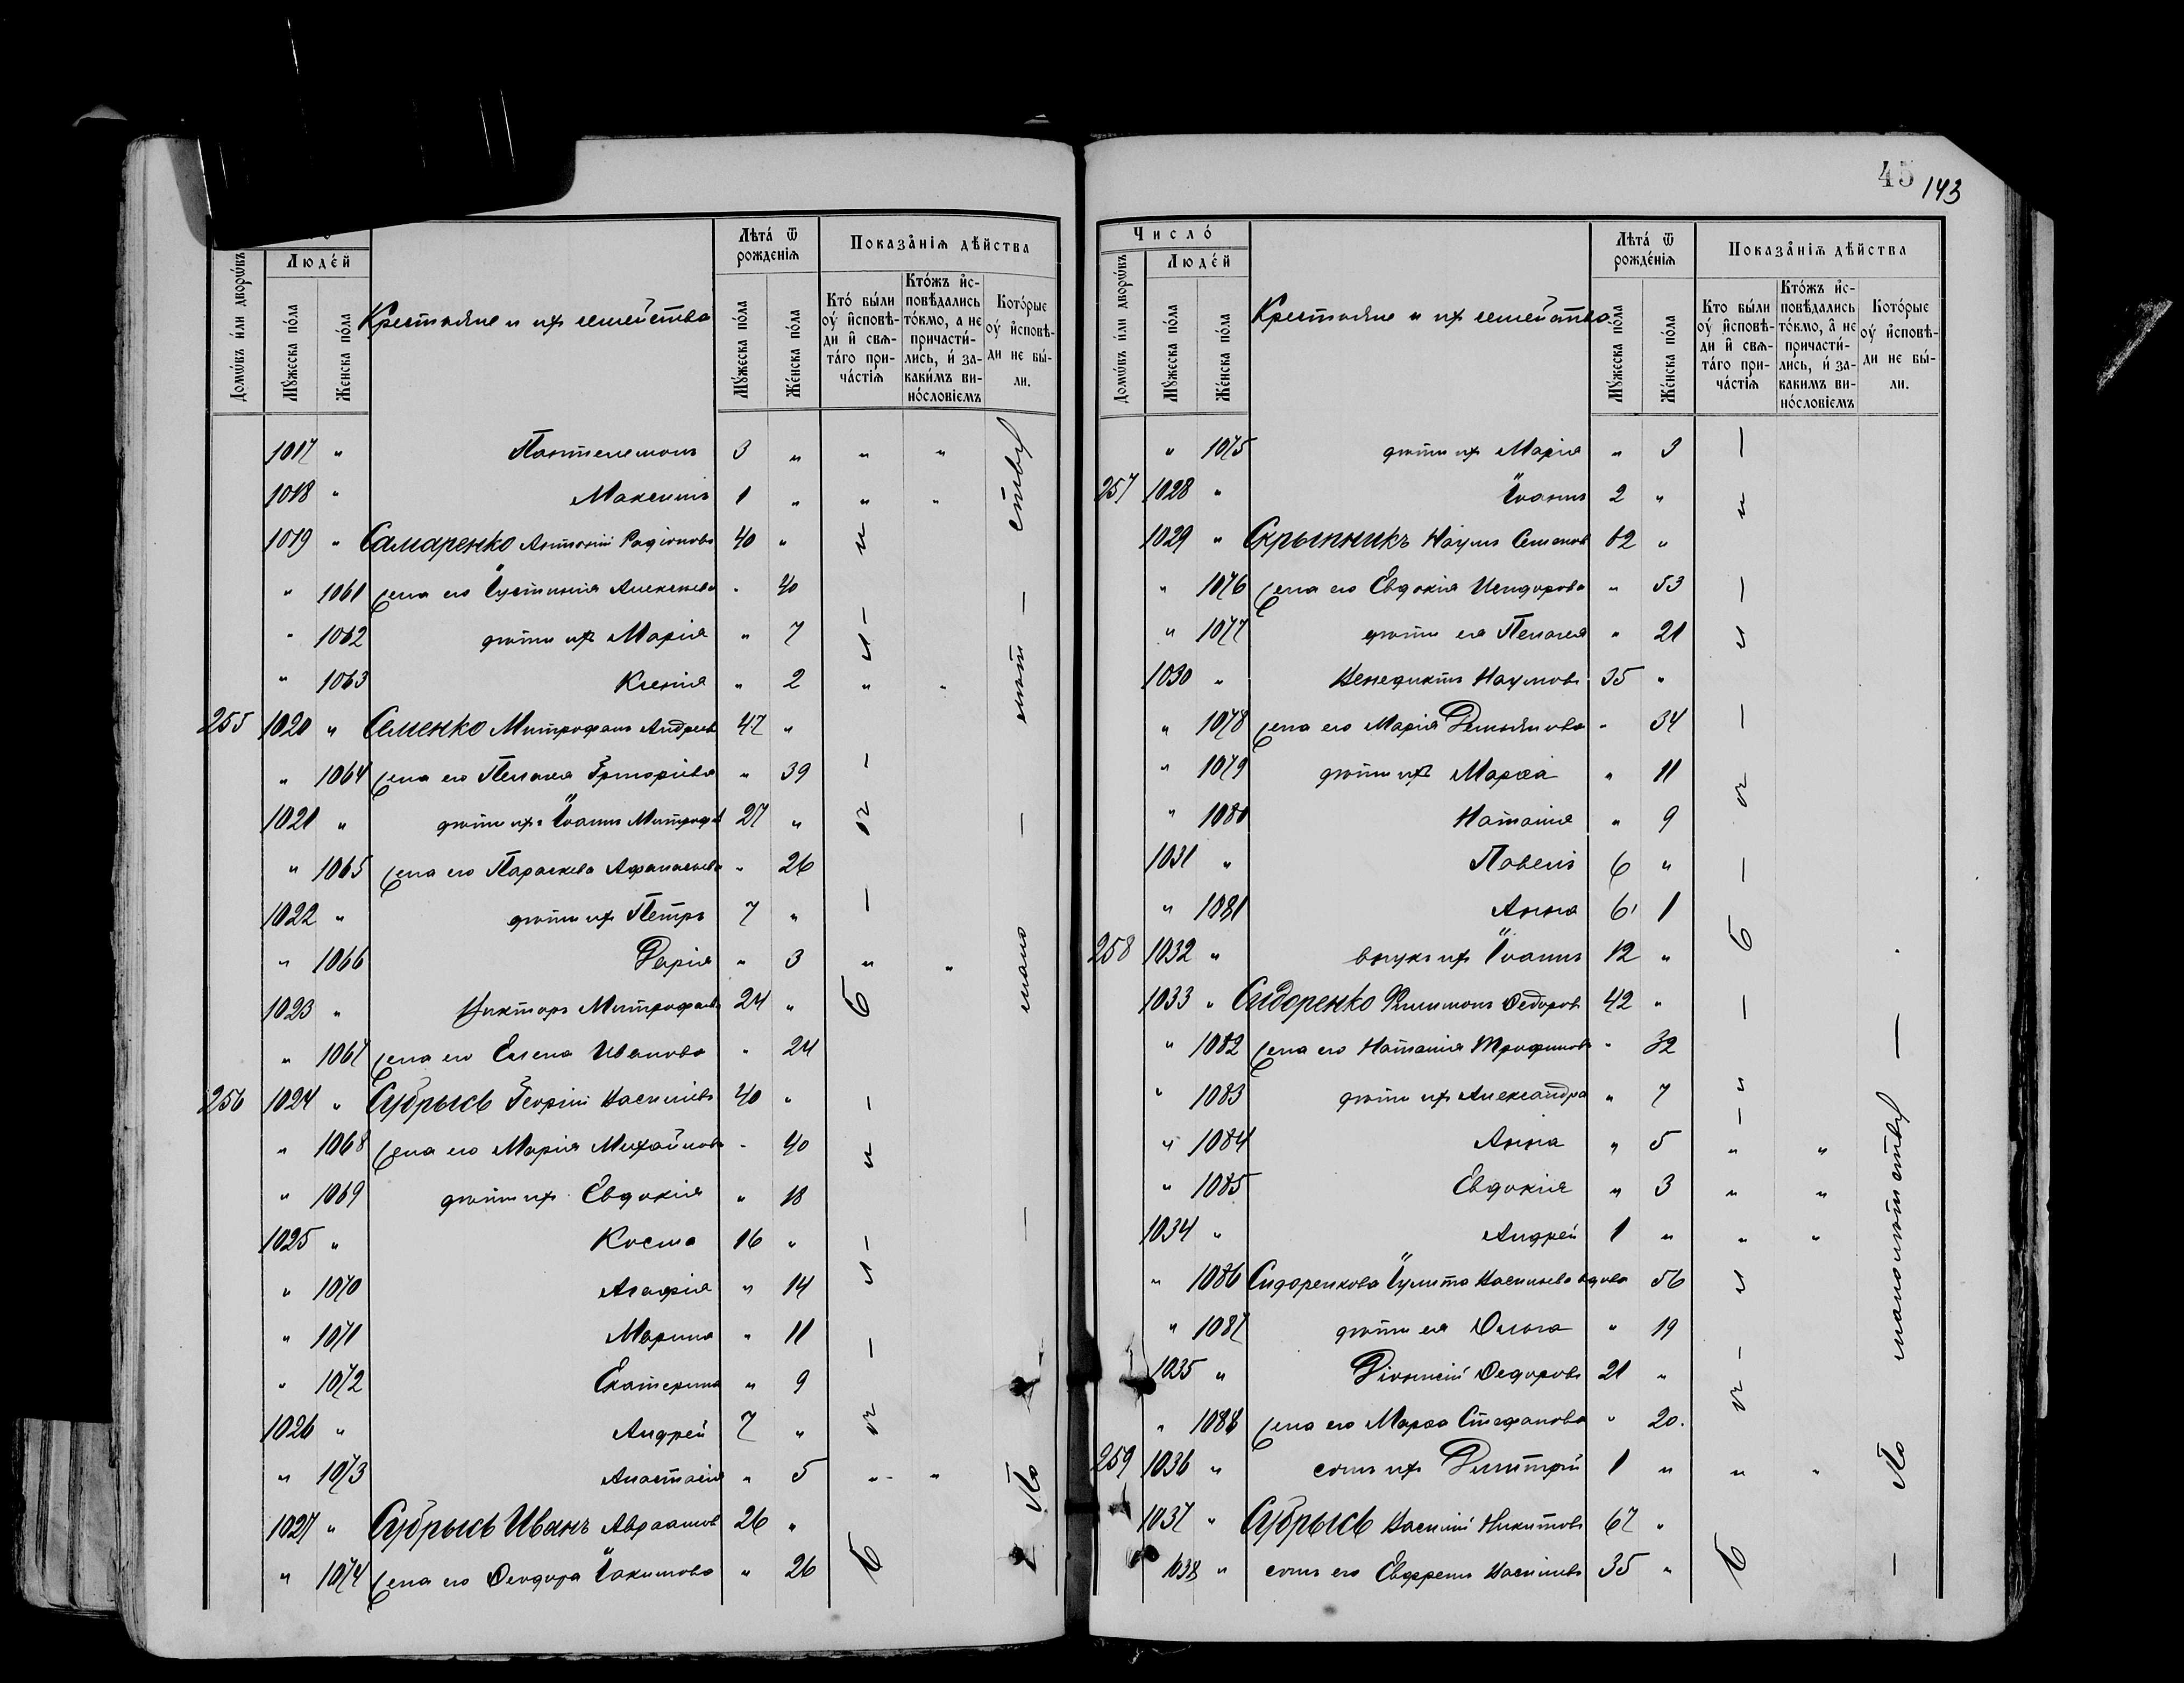 Людéй
Лѣта́ ѿ рожденїѧ
Показа̑нїѧ дѣ́йства
Домѡ́въ и҆лѝ дворѡ́въ
Мꙋ́жеска по́ла
Же́нска по́ла
Крестьяне и ихъ семейства
Мꙋ́жеска по́ла
Же́нска по́ла
Кто̀ бы́ли оу҆ и҆сповѣ́ди и҆ свѧта́гѡ прича́стїѧ
Кто́жъ и҆сповѣ́дались то́кмо, а не причасти́лись, и҆ за каки́мъ вино́словїемъ
Кото́рые оу҆ и҆сповѣ́ди не бы́ли.
1017 " Пантелеимонъ 3 " " "
1018 " Максимъ 1 " " "
1019 " Самаренко Антоній Радіоновъ 40 "
" 1061 жена его Іустинія Алексѣева " 40
" 1062 дѣти ихъ Марія " 7
" 1063 Ксенія " 2 " "
255 1020 " Семенко Митрофанъ Андреевъ 47 "
" 1064 жена его Пелагея Григоріева " 39
1021 " дѣти ихъ Іоаннъ Митрофановъ 27 "
" 1065 жена его Параскева Афанасьева " 26
1022 " дѣти ихъ Петръ 7 "
" 1066 Дарія " 3 " "
1023 " Викторъ Митрофановъ 24 "
" 1067 жена его Елена Иванова " 24
256 1024 " Субрысь Георгій Васильевъ 40 "
" 1068 жена его Марія Михайлова " 40
" 1069 дѣти ихъ Евдокія " 18
1025 " Косма 16 "
" 1070 Агафія " 14
" 1071 Марина " 11
" 1072 Екатерина " 9
1026 " Андрей 7 "
" 1073 Анастасія " 5 " "
1027 " Субрысь Иванъ Авраамовъ 26 "
" 1074 жена его Феодора Іакимова " 26
Б — ы — л — и — Б — ы — л — и
По — мало — лѣт — ству
45
143
Число́
Людéй
Лѣта́ ѿ рожде́нїѧ
Показа̑нїѧ дѣ́йства
Домѡ́въ и҆лѝ дворѡ́въ
Мꙋ́жеска по́ла
Же́нска по́ла
Крестьяне и ихъ семейства
Мꙋ́жеска по́ла
Же́нска по́ла
Кто бы́ли оу҆ и҆сповѣ́ди и҆ свѧта́гѡ прича́стїѧ
Кто́жъ и҆сповѣ́дались то́кмо, а҆ не причасти́лись, и҆ за каки́мъ вино́словїемъ
Кото́рые оу҆ и҆сповѣ́ди не бы́ли.
" 1075 дѣти ихъ Марія " 3
257 1028 " Іоаннъ 2 "
1029 " Скрыпникъ Наумъ Семеновъ 62 "
" 1076 жена его Евдокія Исидорова " 53
" 1077 дѣти ея Пелагея " 21
1030 " Венедиктъ Наумовъ 35 "
" 1078 жена его Марія Демьянова " 34
" 1079 дѣти ихъ Марѳа " 11
" 1080 Наталія " 9
1031 " Павелъ 6 "
" 1081 Анна 6 1
258 1032 " внукъ ихъ Іоаннъ 12 "
1033 " Сидоренко Филимонъ Федоровъ 42 "
" 1082 жена его Наталія Трофимова " 32
" 1083 дѣти ихъ Александра " 7
" 1084 Анна " 5 " "
" 1085 Евдокія " 3 " "
1034 " Андрей 1 " " "
" 1086 Сидоренкова Іулита Васильева вдова 56
" 1087 дѣти ея Ольга " 19
1035 " Діонисій Федоровъ 21 "
" 1088 жена его Марѳа Стефанова " 20.
259 1036 " сынъ ихъ Димитрій 1 " " "
1037 " Субрысь Василій Никитовъ 67 "
1038 " сынъ его Евфремъ Васильевъ 35 "
Б — ы — л — и — Б — ы — л — и
— По малолѣтству —